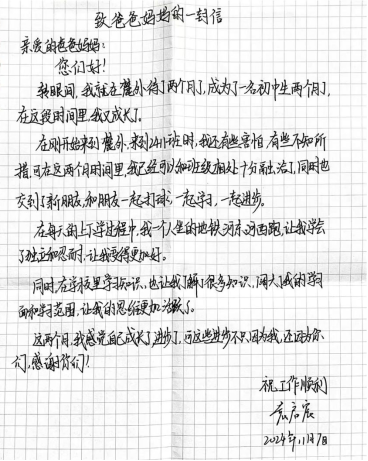 致爸爸妈妈的一封信
亲爱的爸爸妈妈:
您们好!
转眼间,我就在麓外待了两个月了,成为了一名初中生两个月了,
在这段时间里,我又成长了。
在刚开始来到麓外,来到2411班时,我还有些害怕,有些不知所
措,可在这两个月时间里,我已经可以和班级相处十分融洽了,同时也
交到了新朋友,和朋友一起打球,一起学习,一起进步。
在每天的上下学过程中,我一个人坐的地铁,河东河西跑,让我学会
了独立和忍耐,让我变得更加好。
同时在学校里学习知识,也让我了解了很多知识,阔大了我的学习
面和学习范围,让我的思维更加活跃了。
这两个月,我感觉自己成长了,进步了,可这些进步不只因为我,还因为你
们,感谢你们!
祝工作顺利
2024年11月7日